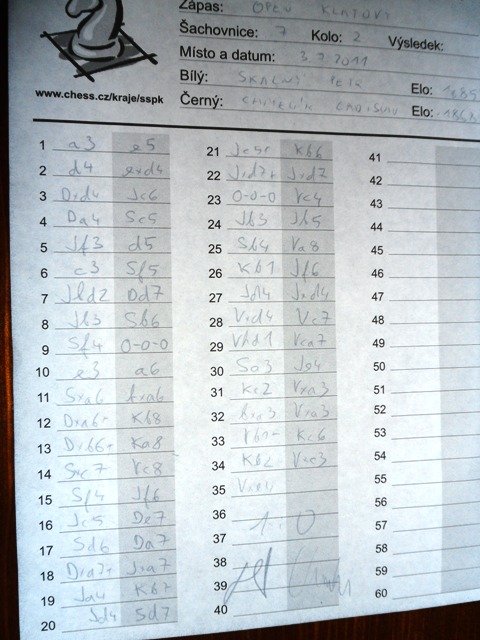 Zápas: OPEN KLATOVY
Šachovnice: 7 Kolo: 2 Výsledek:
Místo a datum: 3.7.2011
Bílý: SKALNÝ PETR Elo: 1885
Černý: LADISLAV Elo:
www.chess.cz/kraje/sspk
1 a3 e5
2 d4 exd4
3 Dxd4 Jc6
4 Da4 Sc5
5 Jf3 d5
6 c3 Sf5
7 Jbd2 Dd7
8 Jb3 Sb6
9 Sf4 0-0-0
10 e3 a6
11 Sxa6 bxa6
12 Dxa6+ Kb8
13 Dxb6+ Ka8
14 Sxc7 Vc8
15 Sf4 Jf6
16 Jc5 De7
17 Sd6 Da7
18 Dxa7+ Jxa7
19 Ja4 Kb7
20 Jd4 Sd7
21 Jc5+ Kb6
22 Jxd7+ Jxd7
23 0-0-0 Vc4
24 Jb3 Jb5
25 Sb4 Va8
26 Kb1 Jf6
27 Jd4 Jxd4
28 Vxd4 Vc7
29 Vhd1 Vca7
30 Sa3 Je4
31 Kc2 Vxa3
32 bxa3 Vxa3
33 Vb1+ Kc6
34 Kb2 Vxc3
35 Vxe4
36 1-0
37
38
39
40
41
42
43
44
45
46
47
48
49
50
51
52
53
54
55
56
57
58
59
60